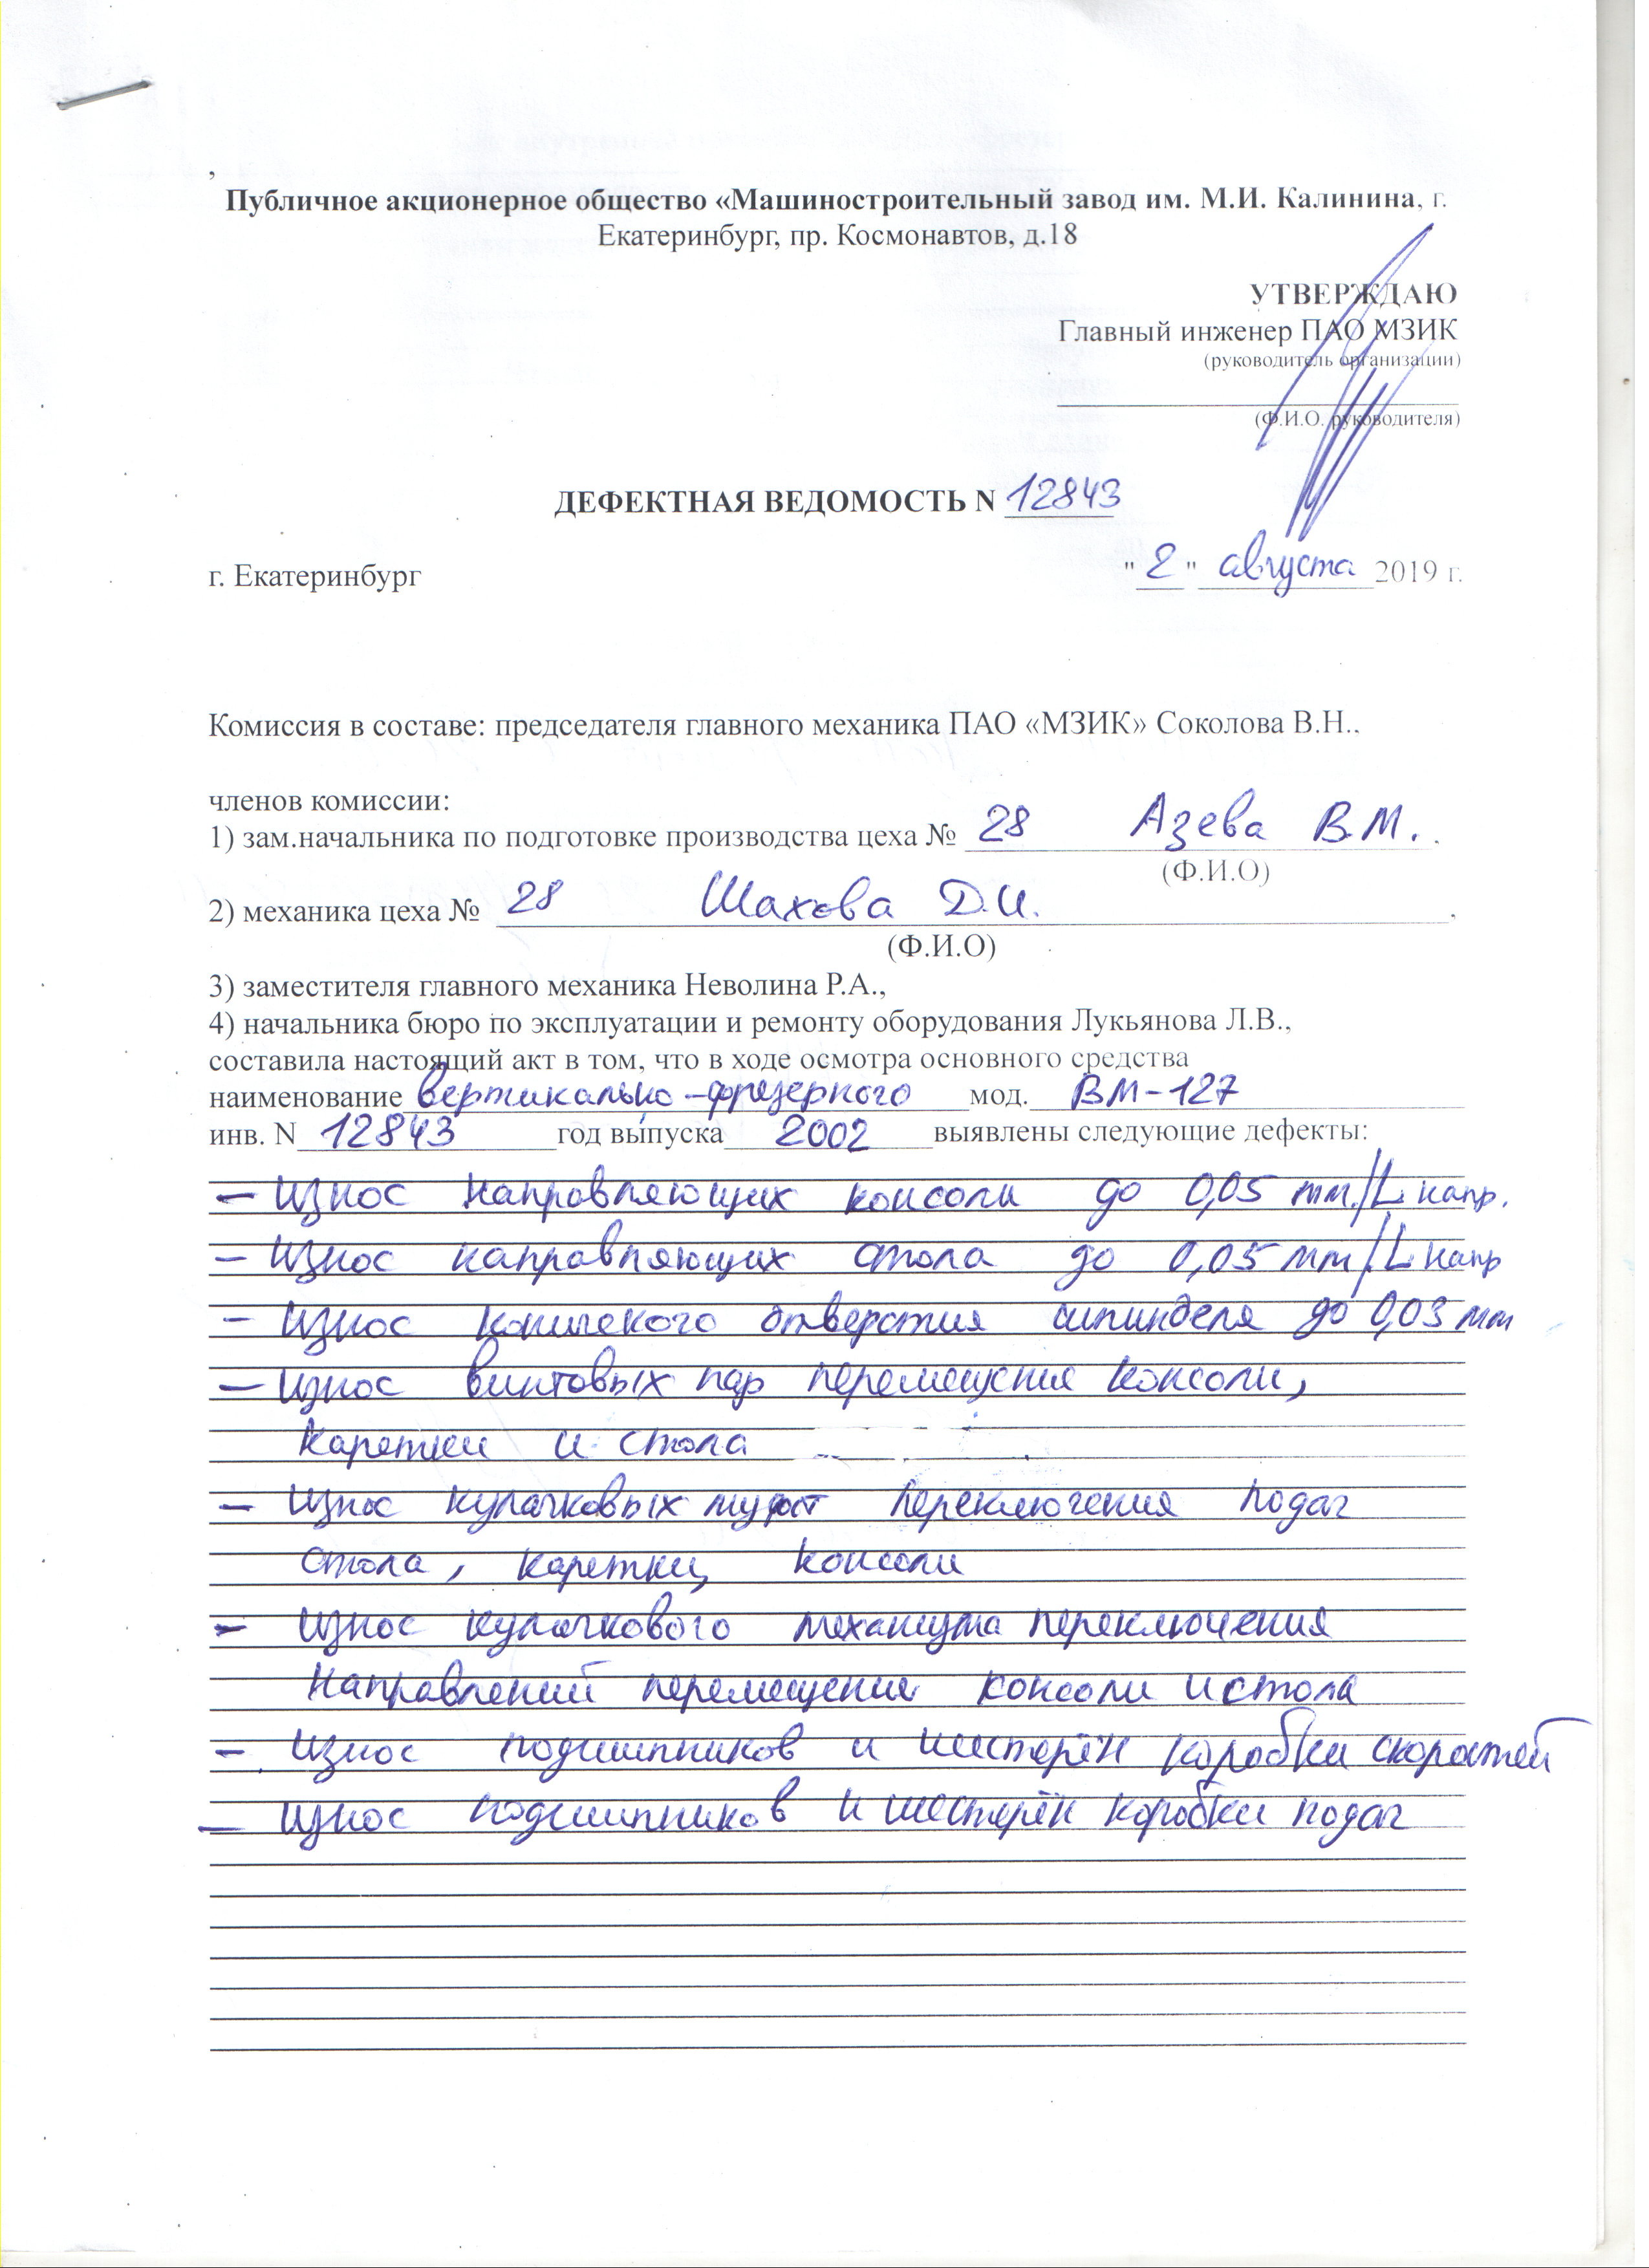 ,
Публичное акционерное общество «Машиностроительный завод им. М.И. Калинина, г.
Екатеринбург, пр. Космонавтов, д.18
УТВЕРЖДАЮ
Главный инженер ПАО МЗИК
(руководитель организации)
(Ф.И.О. руководителя)
ДЕФЕКТНАЯ ВЕДОМОСТЬ N 12843
г. Екатеринбург "2" августа 2019 г.
Комиссия в составе: председателя главного механика ПАО «МЗИК» Соколова В.Н.,
членов комиссии:
1) зам.начальника по подготовке производства цеха № 28 Азева В.М.,
(Ф.И.О)
2) механика цеха № 28 Шахова Д.И.,
(Ф.И.О)
3) заместителя главного механика Неволина Р.А.,
4) начальника бюро по эксплуатации и ремонту оборудования Лукьянова Л.В.,
составила настоящий акт в том, что в ходе осмотра основного средства
наименование вертикально-фрезерного мод. ВМ-127
инв. N 12843 год выпуска 2002 выявлены следующие дефекты:
- Износ направляющих консоли до 0,05 мм./L напр.
- Износ направляющих стола до 0,05 мм/L напр
- Износ конического отверстия шпинделя до 0,03 мм
- Износ винтовых пар перемещения консоли,
каретки и стола
- Износ кулачковых муфт переключения подач
стола, каретки, консоли
- Износ кулачкового механизма переключения
направлений перемещения консоли и стола
- Износ подшипников и шестерён коробки скоростей
- Износ подшипников и шестерён коробки подач